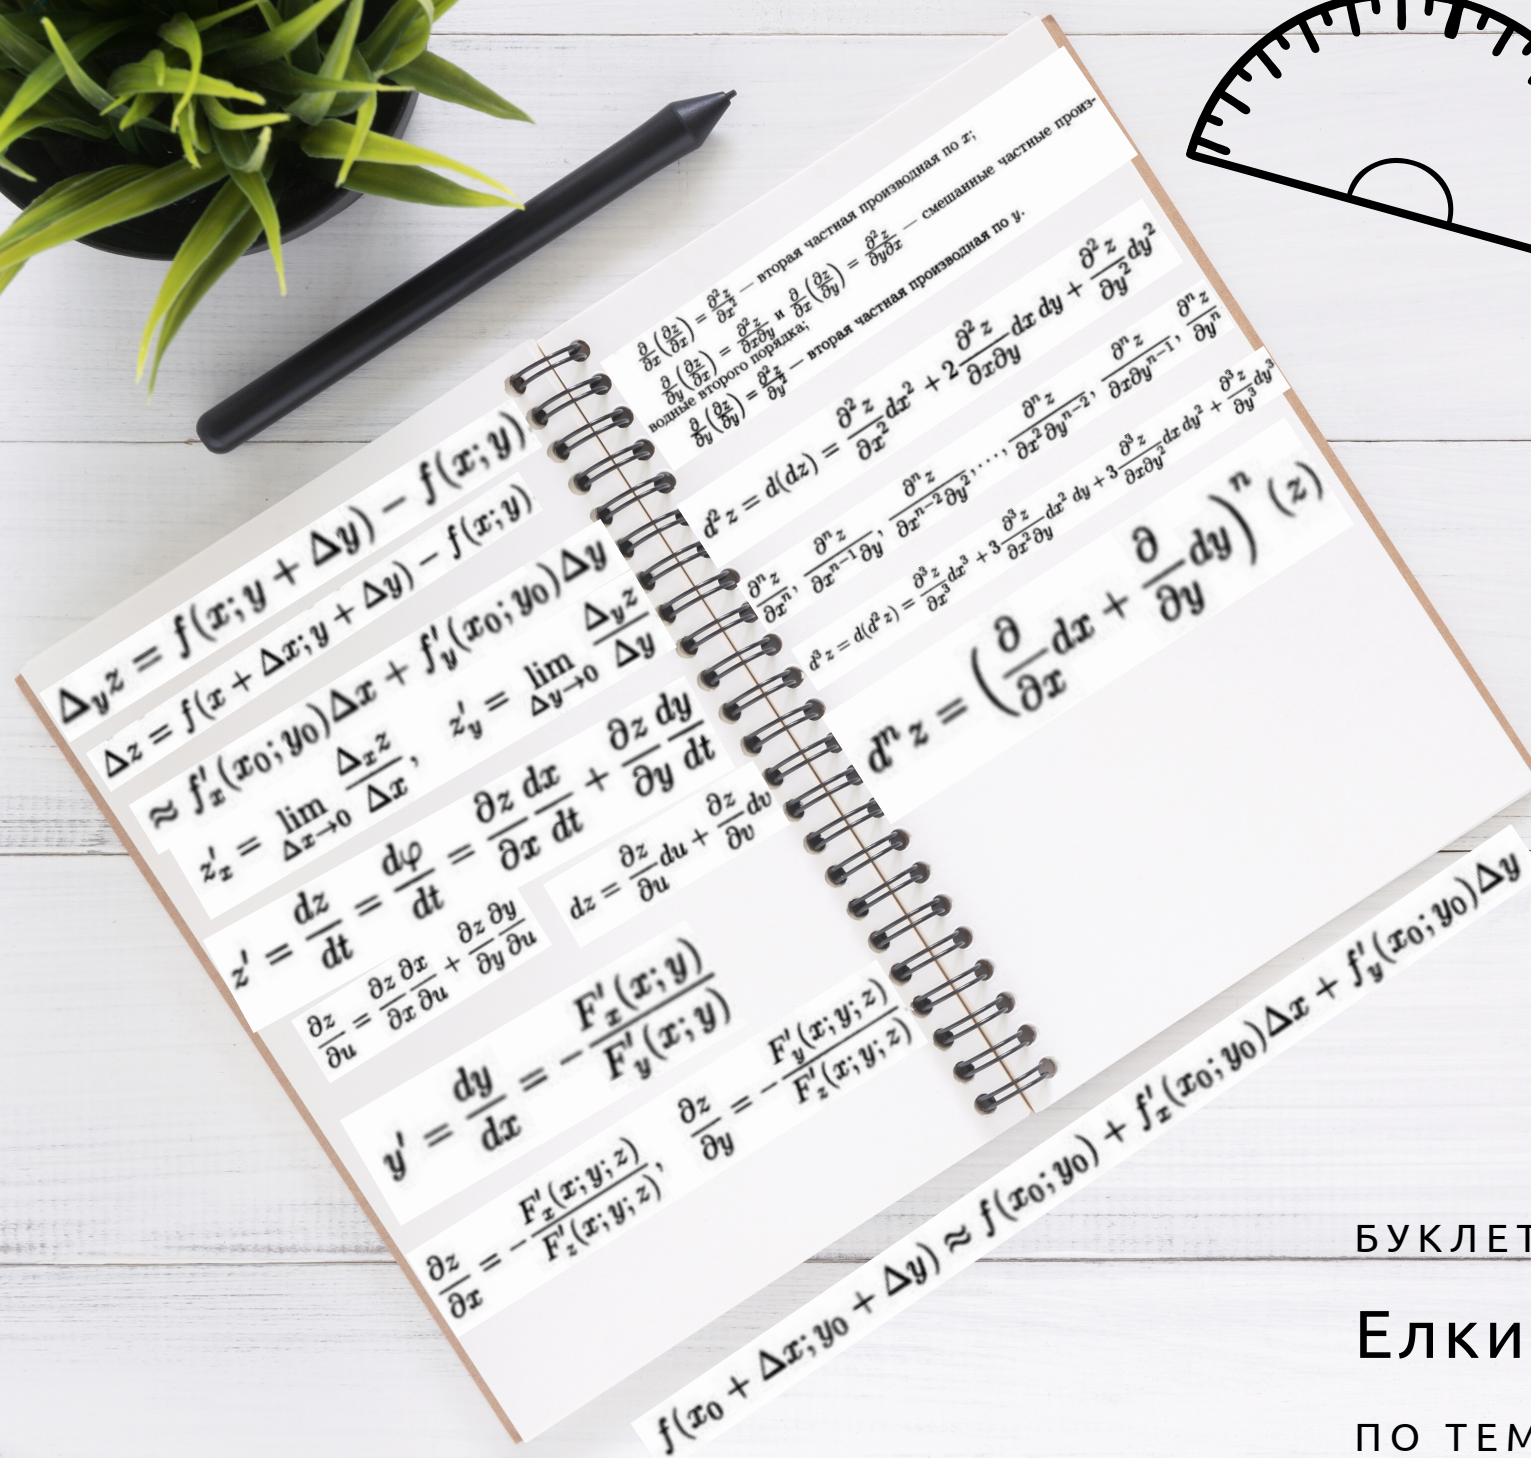 Δ_y z = f(x; y + Δy) − f(x; y)
Δz = f(x + Δx; y + Δy) − f(x; y)
≈ f′_x(x₀; y₀)Δx + f′_y(x₀; y₀)Δy
z′_x = lim_{Δx→0} Δ_x z/Δx, z′_y = lim_{Δy→0} Δ_y z/Δy
z′ = dz/dt = dφ/dt = ∂z/∂x dx/dt + ∂z/∂y dy/dt
∂z/∂u = ∂z/∂x ∂x/∂u + ∂z/∂y ∂y/∂u
dz = ∂z/∂u du + ∂z/∂v dv
y′ = dy/dx = − F′_x(x; y)/F′_y(x; y)
∂z/∂x = − F′_x(x; y; z)/F′_z(x; y; z), ∂z/∂y = − F′_y(x; y; z)/F′_z(x; y; z)
∂/∂x(∂z/∂x) = ∂²z/∂x² — вторая частная производная по x;
∂/∂y(∂z/∂x) = ∂²z/∂x∂y и ∂/∂x(∂z/∂y) = ∂²z/∂y∂x — смешанные частные произ-
водные второго порядка;
∂/∂y(∂z/∂y) = ∂²z/∂y² — вторая частная производная по y.
d²z = d(dz) = ∂²z/∂x² dx² + 2 ∂²z/∂x∂y dx dy + ∂²z/∂y² dy²
∂ⁿz/∂xⁿ, ∂ⁿz/∂xⁿ⁻¹∂y, ∂ⁿz/∂xⁿ⁻²∂y², ..., ∂ⁿz/∂x²∂yⁿ⁻², ∂ⁿz/∂x∂yⁿ⁻¹, ∂ⁿz/∂yⁿ
d³z = d(d²z) = ∂³z/∂x³ dx³ + 3 ∂³z/∂x²∂y dx² dy + 3 ∂³z/∂x∂y² dx dy² + ∂³z/∂y³ dy³
dⁿz = (∂/∂x dx + ∂/∂y dy)ⁿ (z)
f(x₀ + Δx; y₀ + Δy) ≈ f(x₀; y₀) + f′_x(x₀; y₀)Δx + f′_y(x₀; y₀)Δy
БУКЛЕТ
Елки
ПО ТЕМ